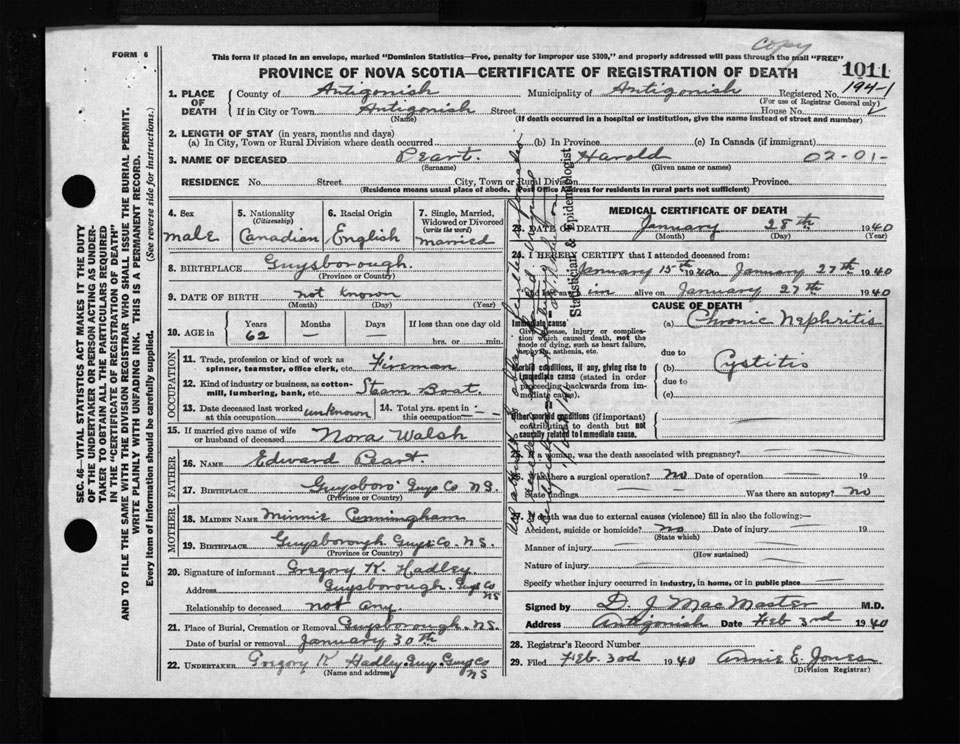 FORM 6
copy
This form if placed in an envelope, marked "Dominion Statistics—Free, penalty for improper use $300," and properly addressed will pass through the mail "FREE"
PROVINCE OF NOVA SCOTIA—CERTIFICATE OF REGISTRATION OF DEATH
1011
1. PLACE OF DEATH
County of Antigonish Municipality of Antigonish Registered No. 194-1
(For use of Registrar General only)
If in City or Town Antigonish Street House No.
(Name) (If death occurred in a hospital or institution, give the name instead of street and number)
2. LENGTH OF STAY (in years, months and days)
(a) In City, Town or Rural Division where death occurred (b) In Province (c) In Canada (if immigrant)
3. NAME OF DECEASED Peart. Harold 02-01-
(Surname) (Given name or names)
RESIDENCE No. Street City, Town or Rural Division Province
(Residence means usual place of abode. Post Office Address for residents in rural parts not sufficient)
4. Sex male
5. Nationality (Citizenship) Canadian
6. Racial Origin English
7. Single, Married, Widowed or Divorced (write the word) married
8. BIRTHPLACE Guysborough.
(Province or Country)
9. DATE OF BIRTH not known
(Month) (Day) (Year)
10. AGE in Years 62 Months — Days — If less than one day old hrs. or min.
OCCUPATION
11. Trade, profession or kind of work as spinner, teamster, office clerk, etc. Fireman
12. Kind of industry or business, as cotton-mill, lumbering, bank, etc. Steam Boat
13. Date deceased last worked at this occupation unknown 14. Total yrs. spent in this occupation — —
15. If married give name of wife or husband of deceased Nora Walsh
FATHER
16. NAME Edward Peart.
17. BIRTHPLACE Guysboro' Guys Co N.S.
(Province or Country)
MOTHER
18. MAIDEN NAME Minnie Cunningham
19. BIRTHPLACE Guysborough Guys Co. N.S.
(Province or Country)
20. Signature of informant Gregory K. Hadley
Address Guysborough. Guys Co NS
Relationship to deceased not any.
21. Place of Burial, Cremation or Removal Guysborough. N.S.
Date of burial or removal January 30th
22. UNDERTAKER Gregory K Hadley. Guy. Guys Co NS
(Name and address)
MEDICAL CERTIFICATE OF DEATH
23. DATE OF DEATH January 28th 1940
(Month) (Day) (Year)
24. I HEREBY CERTIFY that I attended deceased from:
January 15th 1940 to January 27th 1940
and last saw him alive on January 27th 1940
CAUSE OF DEATH
Immediate cause
Give disease, injury or complication which caused death, not the mode of dying, such as heart failure, asphyxia, asthenia, etc.
(a) Chronic Nephritis
due to
Morbid conditions, if any, giving rise to immediate cause (stated in order proceeding backwards from immediate cause).
(b) Cystitis
due to
(c)
Other morbid conditions (if important) contributing to death but not causally related to immediate cause.
25. If a woman, was the death associated with pregnancy?
26. Was there a surgical operation? no Date of operation — 19
State findings — Was there an autopsy? no
27. If death was due to external causes (violence) fill in also the following:—
Accident, suicide or homicide? No Date of injury — 19
(State which)
Manner of injury
(How sustained)
Nature of injury
Specify whether injury occurred in industry, in home, or in public place —
Signed by D. J. MacMaster M.D.
Address Antigonish Date Feb 3rd 1940
28. Registrar's Record Number
29. Filed Feb. 3rd 1940 Annie E. Jones
(Division Registrar)
Statistician & Epidemiologist
SEC. 46—VITAL STATISTICS ACT MAKES IT THE DUTY
OF THE UNDERTAKER OR PERSON ACTING AS UNDER-
TAKER TO OBTAIN ALL THE PARTICULARS REQUIRED
IN THE "CERTIFICATE OF REGISTRATION OF DEATH"
AND TO FILE THE SAME WITH THE DIVISION REGISTRAR WHO SHALL ISSUE THE BURIAL PERMIT.
WRITE PLAINLY WITH UNFADING INK. THIS IS A PERMANENT RECORD.
Every item of information should be carefully supplied. (See reverse side for instructions.)